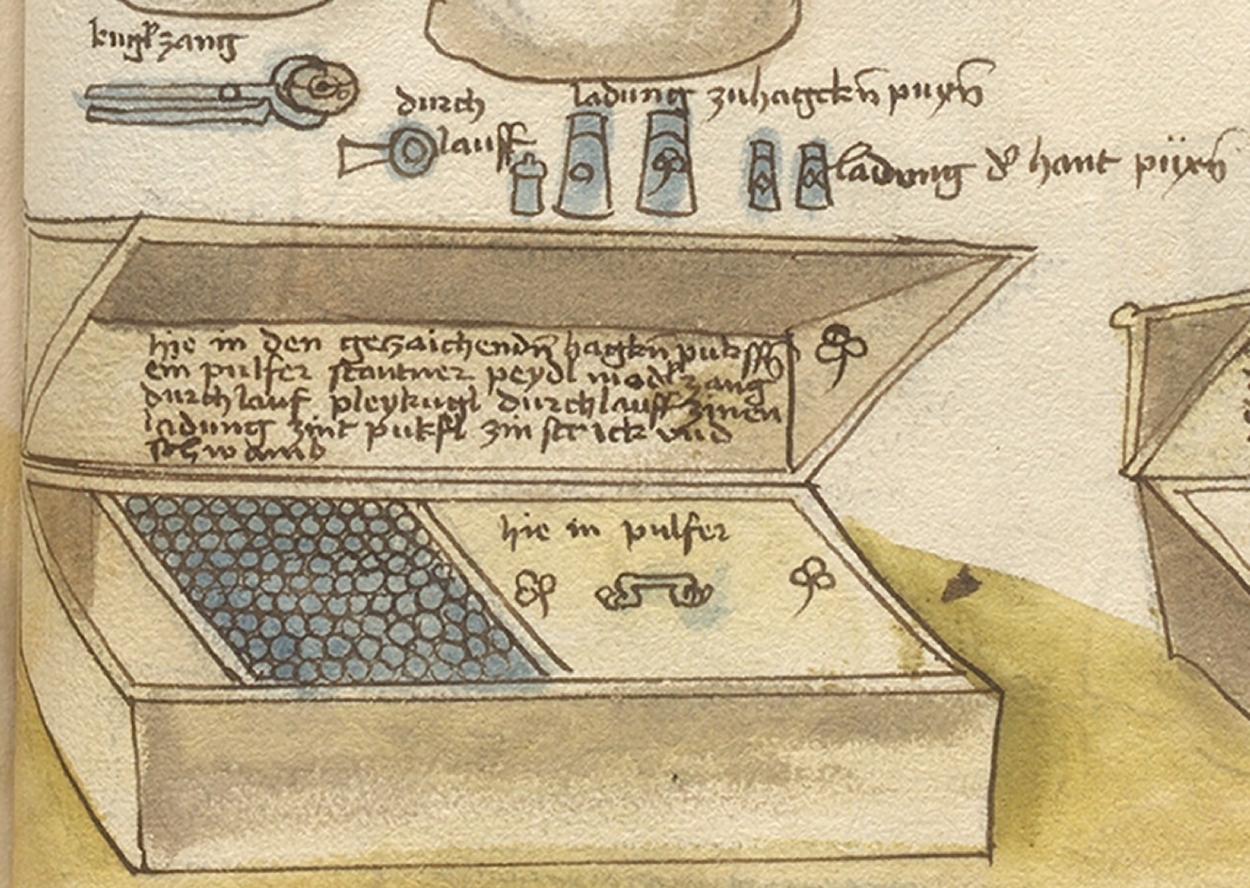 kuglzang
durch
lauff
ladung zu hagckn puxn
ladung d' hant püxn
hie in den gezaichendn hagkn
ein pulfer peydl modl zang
durchlauf pleykugl durchlauff zinen
ladung zint zin strick vnd
schwamb
hie in pulfer